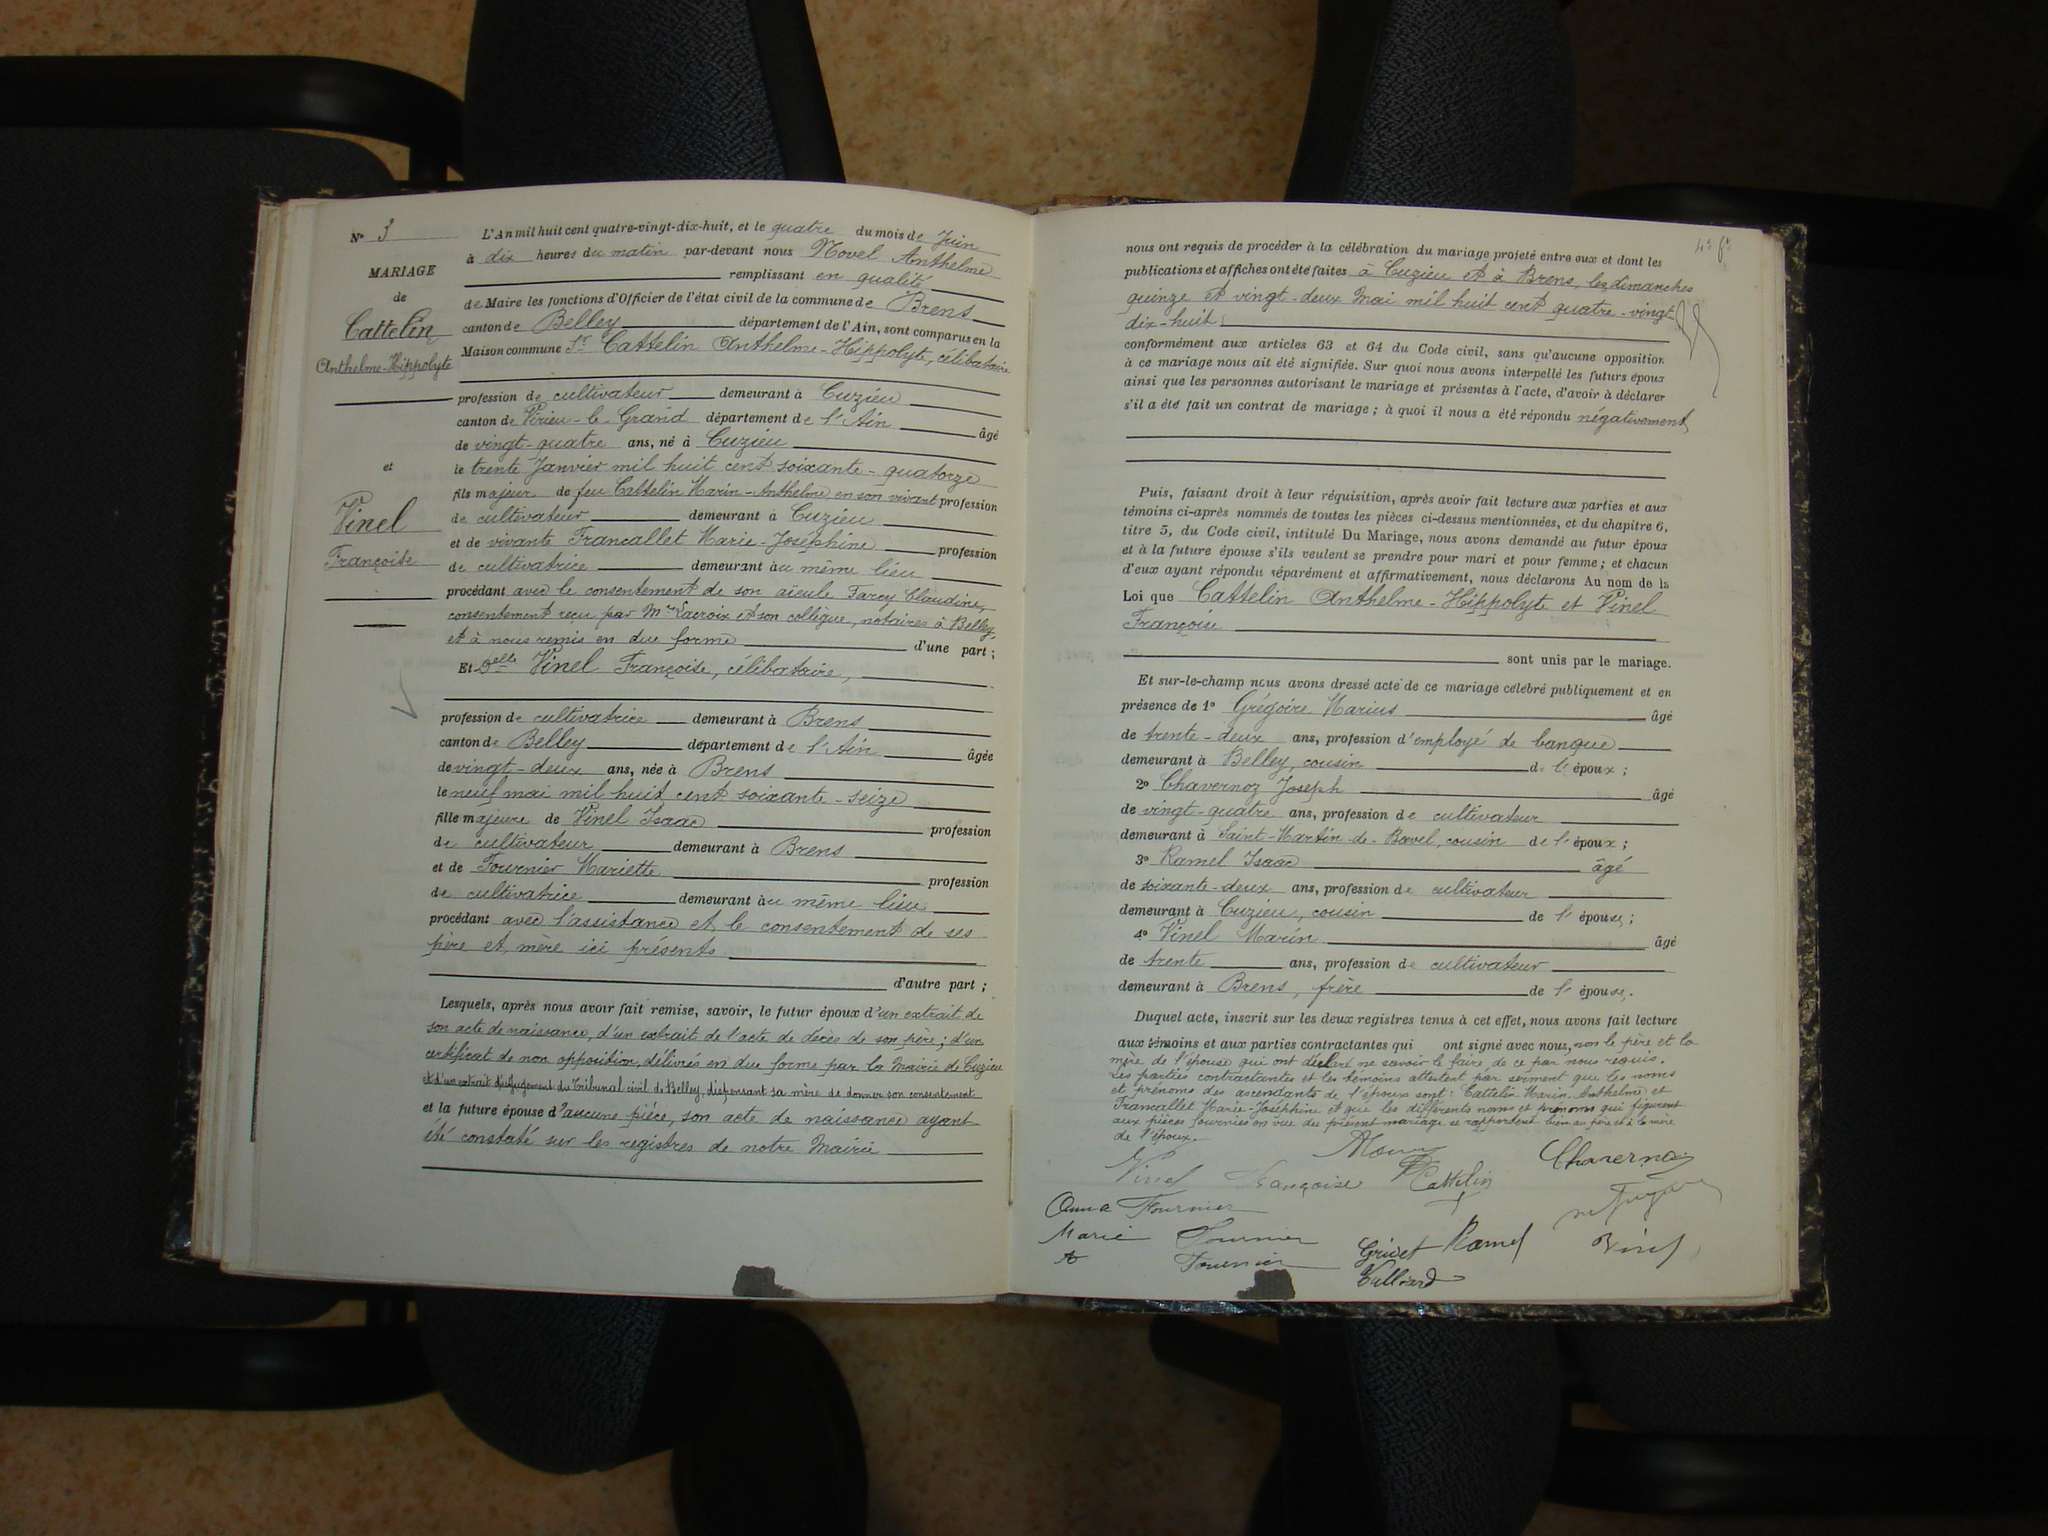 N° 3
MARIAGE
de
Cattelin
Anthelme-Hippolyte
et
Vinel
Françoise
L'An mil huit cent quatre-vingt-dix-huit, et le quatre du mois de Juin
à dix heures du matin par-devant nous Novel Anthelme
remplissant en qualité
de Maire les fonctions d'Officier de l'état civil de la commune de Brens
canton de Belley département de l'Ain, sont comparus en la
Maison commune Sr Cattelin Anthelme-Hippolyte, célibataire
profession de cultivateur demeurant à Cuzieu
canton de Virieu-le-Grand département de l'Ain âgé
de vingt-quatre ans, né à Cuzieu
le trente Janvier mil huit cent soixante-quatorze
fils majeur de feu Cattelin Marin-Anthelme, en son vivant profession
de cultivateur demeurant à Cuzieu
et de vivante Francallet Marie-Joséphine profession
de cultivatrice demeurant au même lieu
procédant avec le consentement de son aïeule Farcy Claudine,
consentement reçu par Me Lacroix et son collègue, notaires à Belley,
et à nous remis en due forme d'une part ;
Et Delle Vinel Françoise, célibataire,
profession de cultivatrice demeurant à Brens
canton de Belley département de l'Ain âgée
de vingt-deux ans, née à Brens
le neuf mai mil huit cent soixante-seize
fille majeure de Vinel Isaac profession
de cultivateur demeurant à Brens
et de Fournier Mariette profession
de cultivatrice demeurant au même lieu
procédant avec l'assistance et le consentement de ses
père et mère ici présents
d'autre part ;
Lesquels, après nous avoir fait remise, savoir, le futur époux d'un extrait de
son acte de naissance, d'un extrait de l'acte de décès de son père ; d'un
certificat de non opposition, délivrés en due forme par la Mairie de Cuzieu
et d'un extrait du jugement du Tribunal civil de Belley, dispensant sa mère de donner son consentement
et la future épouse d'aucune pièce, son acte de naissance ayant
été constaté sur les registres de notre Mairie
nous ont requis de procéder à la célébration du mariage projeté entre eux et dont les
publications et affiches ont été faites à Cuzieu et à Brens, les dimanches
quinze et vingt-deux Mai mil huit cent quatre-vingt-
dix-huit
conformément aux articles 63 et 64 du Code civil, sans qu'aucune opposition
à ce mariage nous ait été signifiée. Sur quoi nous avons interpellé les futurs époux
ainsi que les personnes autorisant le mariage et présentes à l'acte, d'avoir à déclarer
s'il a été fait un contrat de mariage ; à quoi il nous a été répondu négativement
Puis, faisant droit à leur réquisition, après avoir fait lecture aux parties et aux
témoins ci-après nommés de toutes les pièces ci-dessus mentionnées, et du chapitre 6,
titre 5, du Code civil, intitulé Du Mariage, nous avons demandé au futur époux
et à la future épouse s'ils veulent se prendre pour mari et pour femme ; et chacun
d'eux ayant répondu séparément et affirmativement, nous déclarons Au nom de la
Loi que Cattelin Anthelme-Hippolyte et Vinel
Françoise
sont unis par le mariage.
Et sur-le-champ nous avons dressé acte de ce mariage célébré publiquement et en
présence de 1° Grégoire Marius âgé
de trente-deux ans, profession d'employé de banque
demeurant à Belley, cousin de l'époux ;
2° Chavernoz Joseph âgé
de vingt-quatre ans, profession de cultivateur
demeurant à Saint-Martin-de-Bavel, cousin de l'époux ;
3° Ramel Isaac âgé
de soixante-deux ans, profession de cultivateur
demeurant à Cuzieu, cousin de l'épouse ;
4° Vinel Marin âgé
de trente ans, profession de cultivateur
demeurant à Brens, frère de l'épouse.
Duquel acte, inscrit sur les deux registres tenus à cet effet, nous avons fait lecture
aux témoins et aux parties contractantes qui ont signé avec nous, non le père et la
mère de l'épouse qui ont déclaré ne savoir le faire, de ce par nous requis.
Les parties contractantes et les témoins attestent par serment que les noms
et prénoms des ascendants de l'époux sont : Cattelin Marin-Anthelme et
Francallet Marie-Joséphine et que les différents noms et prénoms qui figurent
aux pièces fournies en vue du présent mariage se rapportent bien au père et à la mère
de l'époux.
Chavernoz
Vinel Françoise Cattelin
Anna Fournier
Marie Fournier Grivet Ramel Vinel
A Fournier Vulliard